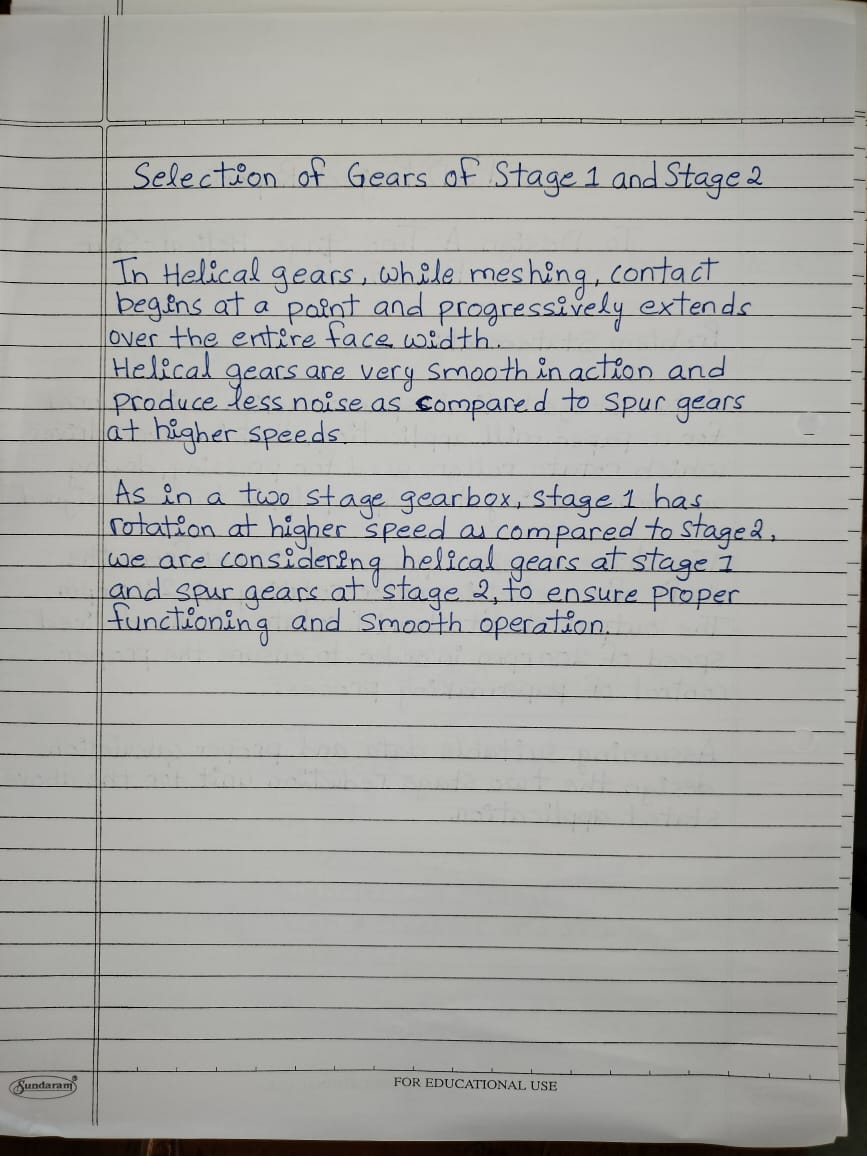 Selection of Gears of Stage 1 and Stage 2
In Helical gears, while meshing, contact
begins at a point and progressively extends
over the entire face width.
Helical gears are very smooth in action and
produce less noise as compared to spur gears
at higher speeds.
As in a two stage gearbox, stage 1 has
rotation at higher speed as compared to stage 2,
we are considering helical gears at stage 1
and spur gears at stage 2, to ensure proper
functioning and smooth operation.
Sundaram®
FOR EDUCATIONAL USE